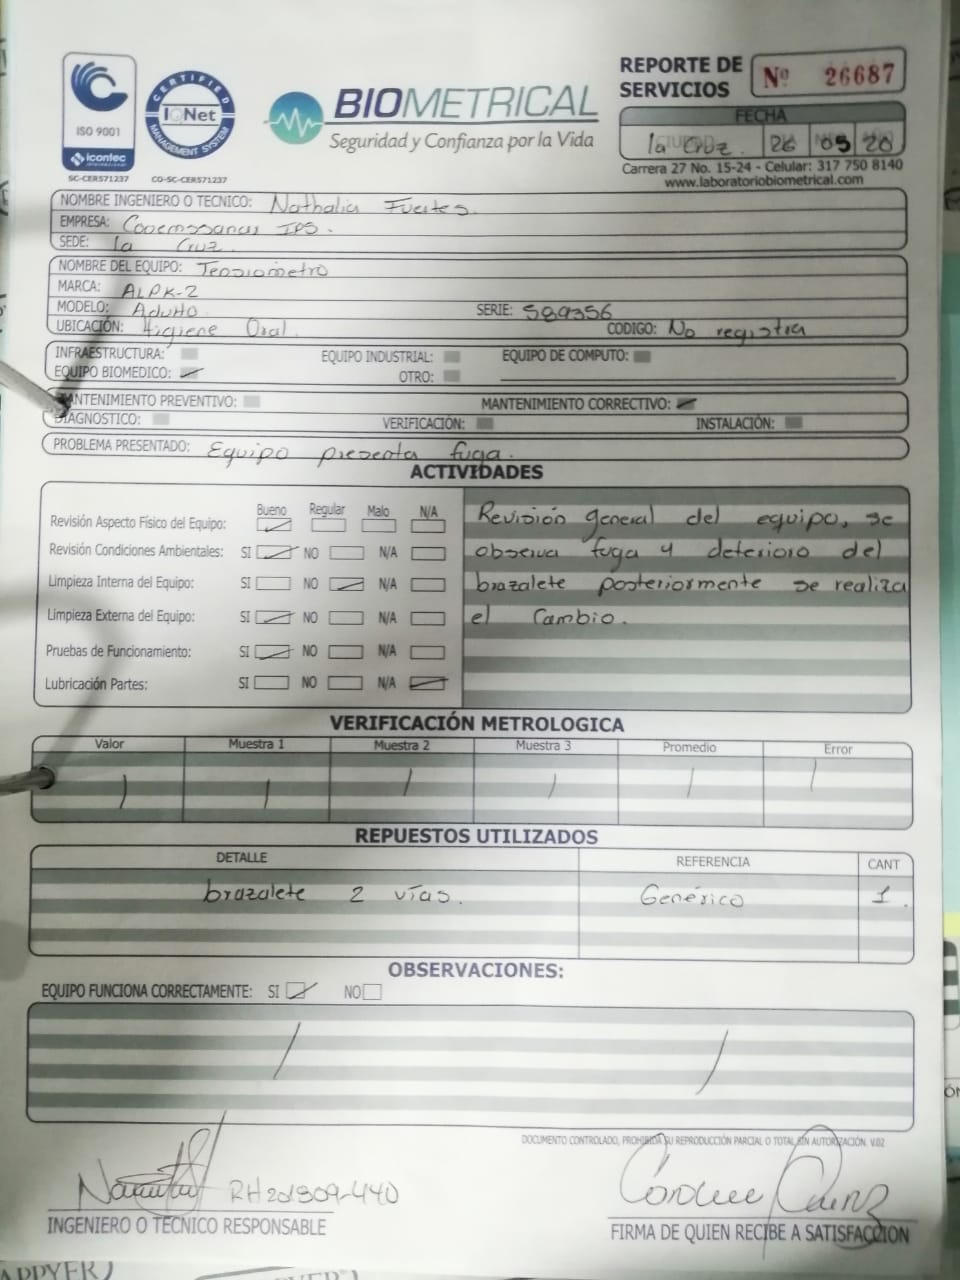 ISO 9001
icontec
internacional
SC-CER571237
CERTIFIED
IQNet
MANAGEMENT SYSTEM
CO-SC-CER571237
BIOMETRICAL
Seguridad y Confianza por la Vida
REPORTE DE SERVICIOS
Nº 26687
FECHA
la Cruz 26 05 20
Carrera 27 No. 15-24 - Celular: 317 750 8140
www.laboratoriobiometrical.com
NOMBRE INGENIERO O TECNICO: Nathalia Fuertes.
EMPRESA: IPS.
SEDE: la Cruz.
NOMBRE DEL EQUIPO: Tensiometro
MARCA: ALPK-2
MODELO: Adulto. SERIE: 589356
UBICACIÓN: Higiene Oral. CODIGO: No registra
INFRAESTRUCTURA: EQUIPO INDUSTRIAL: EQUIPO DE COMPUTO:
EQUIPO BIOMEDICO: OTRO:
MANTENIMIENTO PREVENTIVO: MANTENIMIENTO CORRECTIVO:
DIAGNOSTICO: VERIFICACIÓN: INSTALACIÓN:
PROBLEMA PRESENTADO: Equipo presenta fuga.
ACTIVIDADES
Bueno Regular Malo N/A
Revisión Aspecto Físico del Equipo:
Revisión Condiciones Ambientales: SI NO N/A
Limpieza Interna del Equipo: SI NO N/A
Limpieza Externa del Equipo: SI NO N/A
Pruebas de Funcionamiento: SI NO N/A
Lubricación Partes: SI NO N/A
Revisión general del equipo, se
observa fuga y deterioro del
brazalete posteriormente se realiza
el Cambio.
VERIFICACIÓN METROLOGICA
Valor Muestra 1 Muestra 2 Muestra 3 Promedio Error
/ / / / / /
REPUESTOS UTILIZADOS
DETALLE REFERENCIA CANT
brazalete 2 vías. Genérico 1.
OBSERVACIONES:
EQUIPO FUNCIONA CORRECTAMENTE: SI NO
/ /
DOCUMENTO CONTROLADO, PROHIBIDA SU REPRODUCCIÓN PARCIAL O TOTAL SIN AUTORIZACIÓN. V.02
RH201809-440
INGENIERO O TÉCNICO RESPONSABLE
FIRMA DE QUIEN RECIBE A SATISFACCION